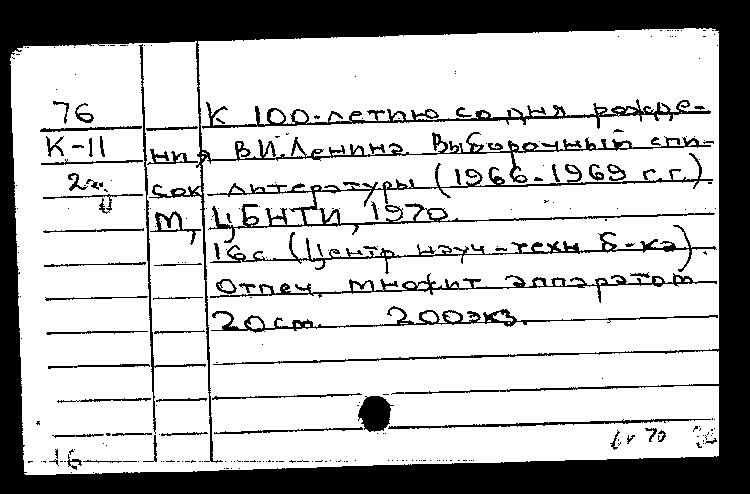 76 К 100-летию со дня рожде-
К-11 ния В.И.Ленина. Выборочный спи-
сок литературы (1966-1969 г.г.).
М, ЦБНТИ, 1970.
16с (Центр науч-техн б-ка).
Отпеч. множит аппаратом
20cm. 200экз.
70
16